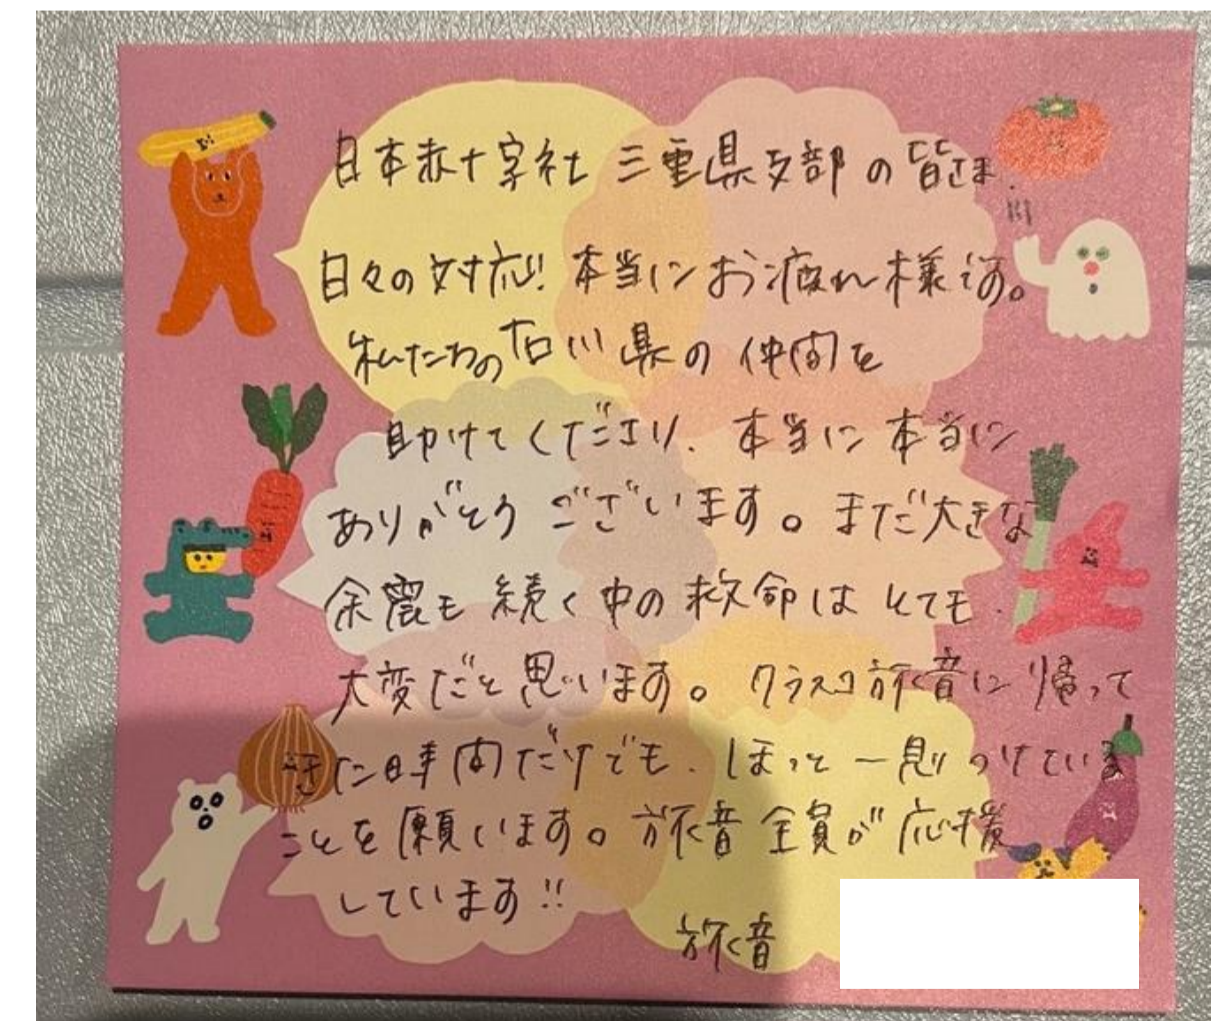 日本赤十字社 三重県支部の皆さま.
日々の対応! 本当にお疲れ様です。
私たちの石川県の仲間を
助けてくださり、本当に本当に
ありがとうございます。まだ大きな
余震も続く中の救命はとても、
大変だと思います。クラスコ旅音に帰って
きた時間だけでも、ほっと一息つけている
ことを願います。旅音全員が応援
しています!!
旅音